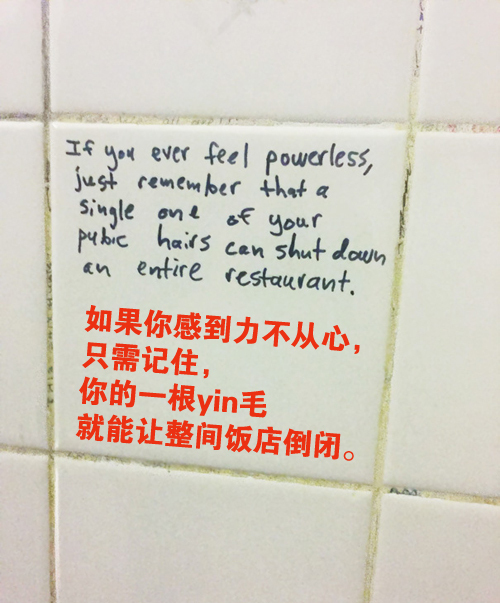 If you ever feel powerless,
just remember that a
single one of your
pubic hairs can shut down
an entire restaurant.
如果你感到力不从心，
只需记住，
你的一根yin毛
就能让整间饭店倒闭。